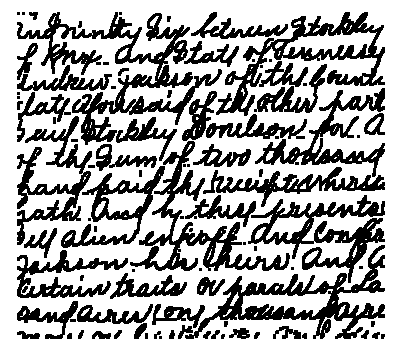 and Ninety Six between Stockley
of Knox and State of Tennessey
Andrew Jackson of the Count
State aforesaid of the other part
Said Stockley Donelson for A
of the Sum of two thousand
hand paid the receipt whereo
hath And by these presents
sell alien enfeoff and Confir
Jackson his heirs And A
Certain tracts or parcels of La
sand acres one thousand acre